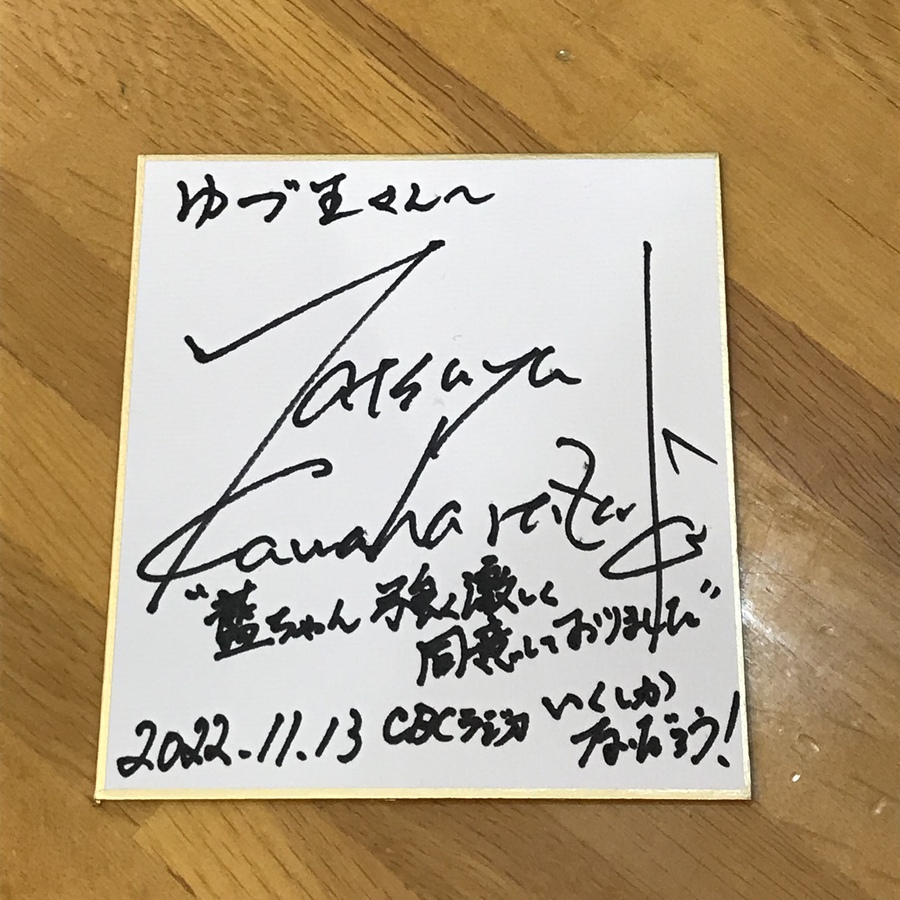 ゆづ王さんへ
Tatsuya
Kawahara
"藍ちゃん 強く激しく
同意しております"
2022.11.13 CBCラジオ いくしか
ないだろう!